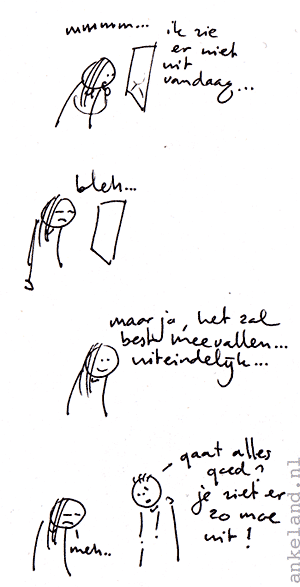 mmmm...
ik zie
er niet
uit
vandaag...
bleh...
maar ja, het zal
best meevallen...
uiteindelijk...
gaat alles
goed?
je ziet er
zo moe
uit!
meh..
ankeland.nl